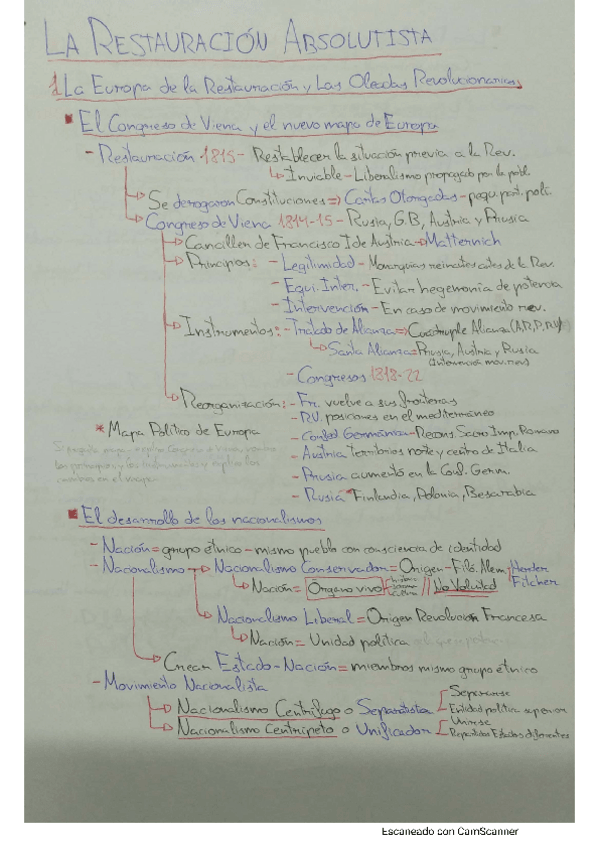 LA RESTAURACIÓN ABSOLUTISTA
1 La Europa de la Restauración y Las Oleadas Revolucionarias
El Congreso de Viena y el nuevo mapa de Europa
- Restauración 1815 - Restablecer la situación previa a la Rev.
Inviable - Liberalismo propagado por la pobl.
Se derogaron Constituciones => Cartas Otorgadas - pequ. part. polí.
Congreso de Viena 1814-15 - Rusia, G.B, Austria y Prusia
Canciller de Francisco I de Austria → Matternich
Principios: - Legitimidad - Monarquías reinantes antes de la Rev.
- Equi. Inter. - Evitar hegemonía de potencia
- Intervención - En caso de movimiento rev.
Instrumentos: - Tratado de Alianza => Cuadruple Alianza (A,R,P,RU)
Santa Alianza = Prusia, Austria y Rusia
(Intervención mov. rev)
- Congresos 1818-22
Reorganización: - Fr. vuelve a sus fronteras
- RU. posiciones en el mediterráneo
* Mapa Político de Europa
- Confed Germánica - Recons. Sacro Imp. Romano
- Austria territorios norte y centro de Italia
- Prusia aumentó en la Conf. Germ.
- Rusia Finlandia, Polonia, Besarabia
El desarrollo de los nacionalismos
- Nación = grupo étnico - mismo pueblo con consciencia de identidad
- Nacionalismo → Nacionalismo Conservador = Origen - Filó. Alem. Herder
Fitcher
Nación = Órgano vivo // No Voluntad
Nacionalismo Liberal = Origen Revolución Francesa
Nación = Unidad política
Crear Estado-Nación = miembros mismo grupo étnico
- Movimiento Nacionalista
Nacionalismo Centrífugo o Separatista Separarse
Entidad política superior
Nacionalismo Centrípeto o Unificador Unirse
Repartidos Estados diferentes
Escaneado con CamScanner